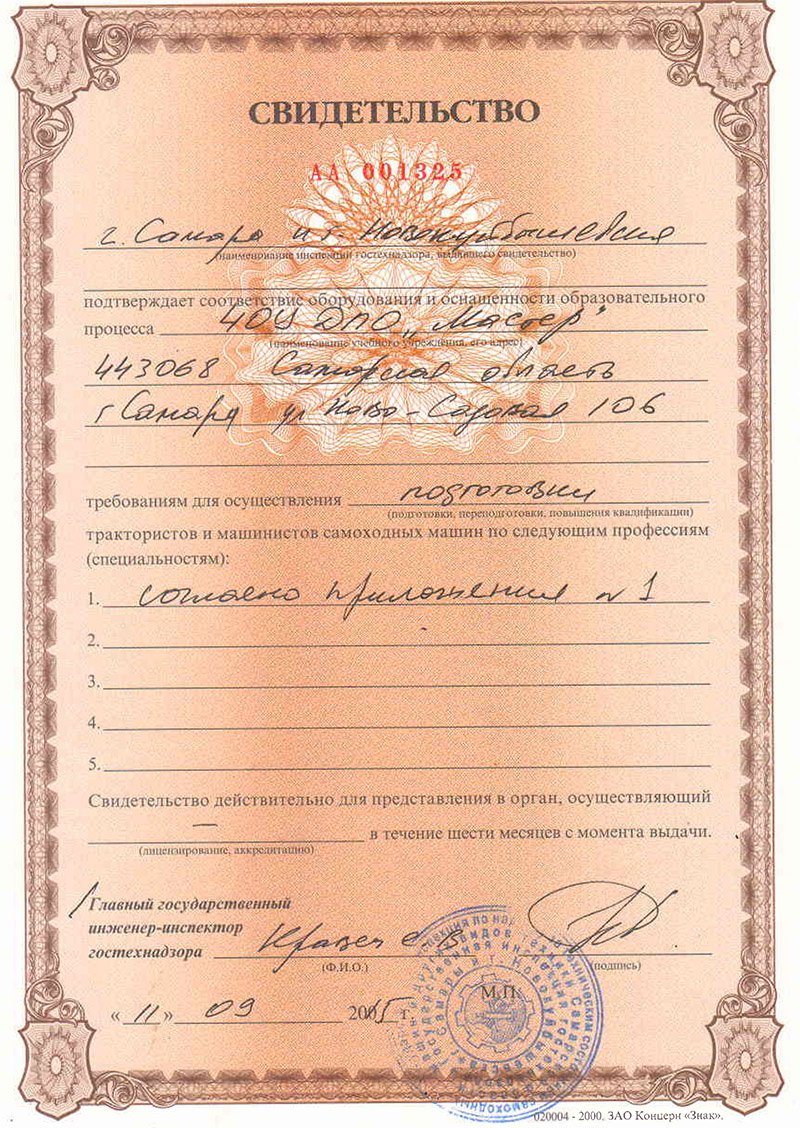 СВИДЕТЕЛЬСТВО
АА 001325
г. Самара и г. Новокуйбышевска
(наименование инспекции гостехнадзора, выдавшего свидетельство)
подтверждает соответствие оборудования и оснащенности образовательного
процесса ЧОУ ДПО „Мастер"
(наименование учебного учреждения, его адрес)
443068 Самарская область
г Самара ул Ново-Садовая 106
требованиям для осуществления подготовки
(подготовки, переподготовки, повышения квалификации)
трактористов и машинистов самоходных машин по следующим профессиям
(специальностям):
1. согласно приложения № 1
2.
3.
4.
5.
Свидетельство действительно для представления в орган, осуществляющий
— в течение шести месяцев с момента выдачи.
(лицензирование, аккредитацию)
Главный государственный
инженер-инспектор
гостехнадзора
(Ф.И.О.) (подпись)
М.П.
« 11 » 09 2015 г.
020004 - 2000. ЗАО Концерн «Знак».